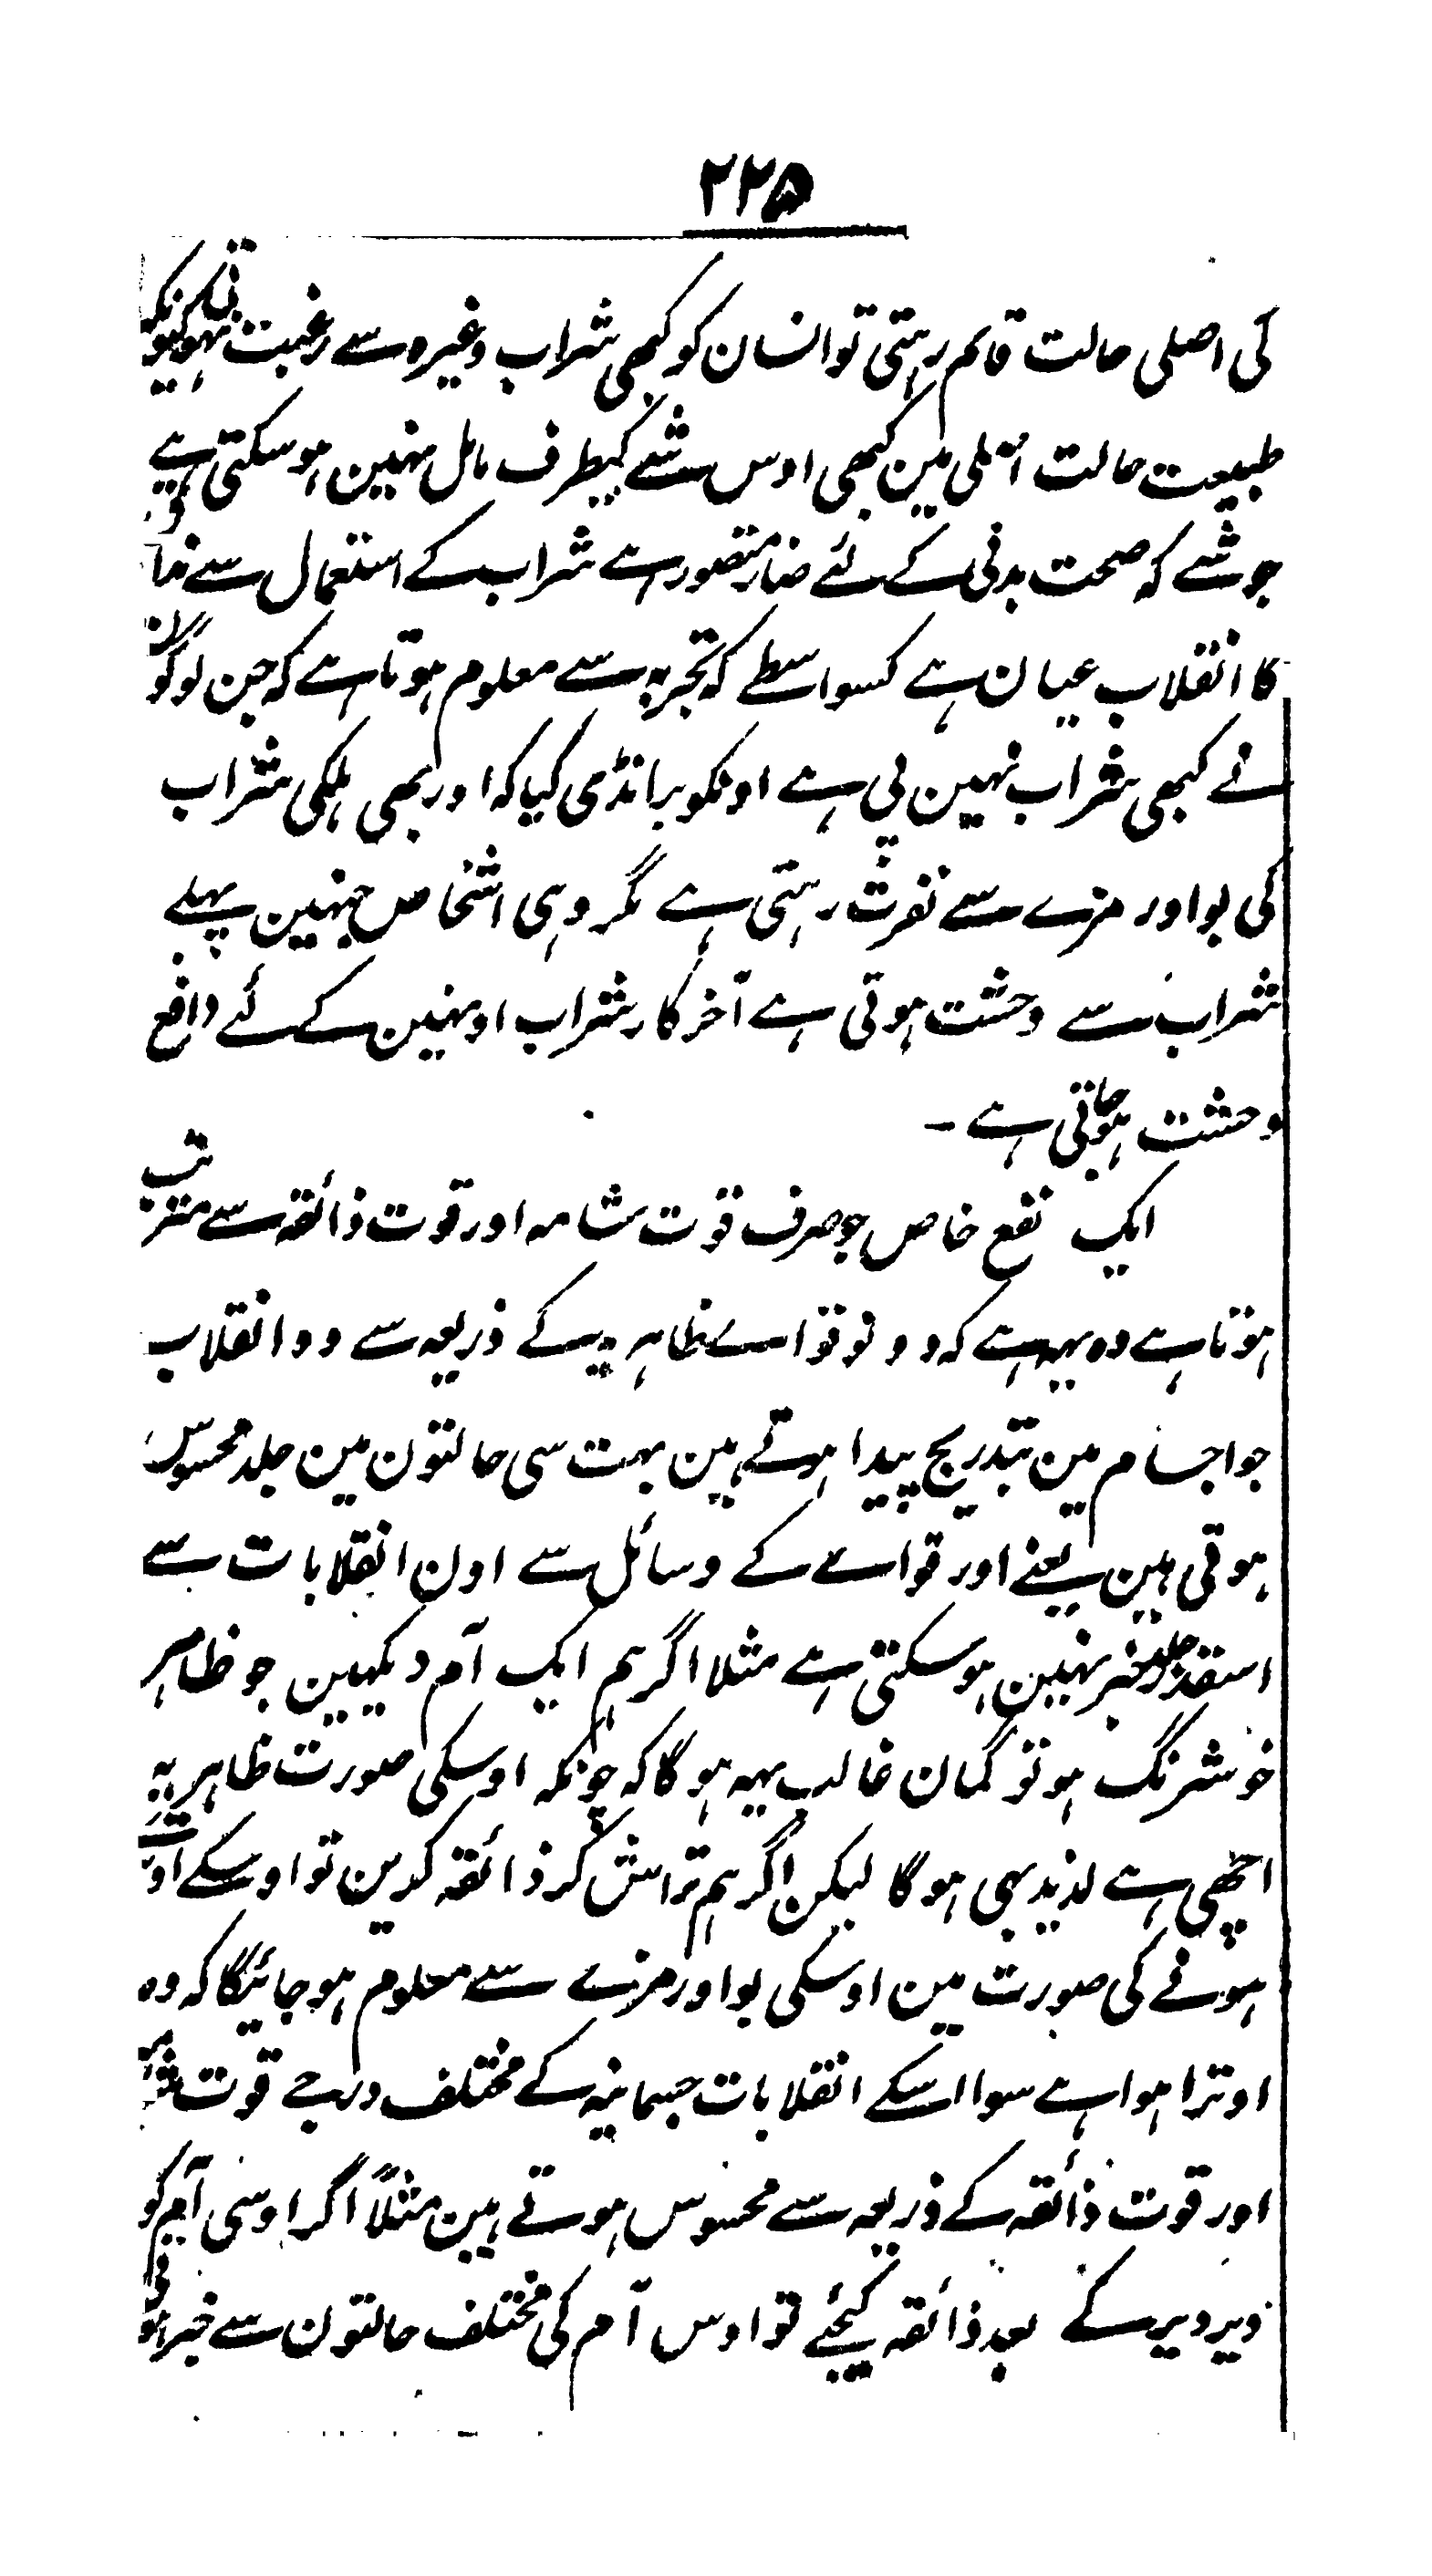 ۲۲۵
کی اصلی حالت قایم رہتی تو انسان کو کبھی شراب وغیرہ سے رغبت نہوتی کیونکہ
طبیعت حالت اصلی مین کبھی اوس شے کیطرف مائل نہین ہو سکتی ہے
جو شے کہ صحت بدنی کے لئے ضار متصور ہے شراب کے استعمال سے
کا انقلاب عیان ہے کسواسطے کہ تجربہ سے معلوم ہوتا ہے کہ جن لوگون
نے کبھی شراب نہین پی ہے اونکو برانڈی کیا کہ اور بھی ہلکی شراب
کی بو اور مزے سے نفرت رہتی ہے مگر وہی اشخاص جنہین پہلے
شراب سے وحشت ہوتی ہے آخر کار شراب اونہین کے لئے دافع
وحشت ہو جاتی ہے ۔
ایک نفع خاص جو صرف قوت شامہ اور قوت ذائقہ سے مترتب
ہوتا ہے وہ یہہ ہے کہ دونو قواے ظاہریہ کے ذریعہ سے وو انقلاب
جو اجسام مین بتدریج پیدا ہوتے ہین بہت سی حالتون مین جلد محسوس
ہوتی ہین یعنے اور قواے کے وسائل سے اون انقلابات سے
استقدر جلد خبر نہین ہو سکتی ہے مثلا اگر ہم ایک آم دیکہین جو ظاہر
خوشرنگ ہو تو گمان غالب یہہ ہوگا کہ چونکہ اوسکی صورت ظاہریہ
اچھی ہے لذیذ بہی ہوگا لیکن اگر ہم تراش کر ذائقہ کرین تو اوسکے اوترے
ہونے کی صورت مین اوسکی بو اور مزے سے معلوم ہو جائیگا کہ وہ
اوترا ہوا ہے سوا اسکے انقلابات جسمانیہ کے مختلف درجے قوت شامہ
اور قوت ذائقہ کے ذریعہ سے محسوس ہوتے ہین مثلاً اگر اوسی آم کو
دیر دیر کے بعد ذائقہ کیجئے تو اوس آم کی مختلف حالتون سے خبر ہوتی